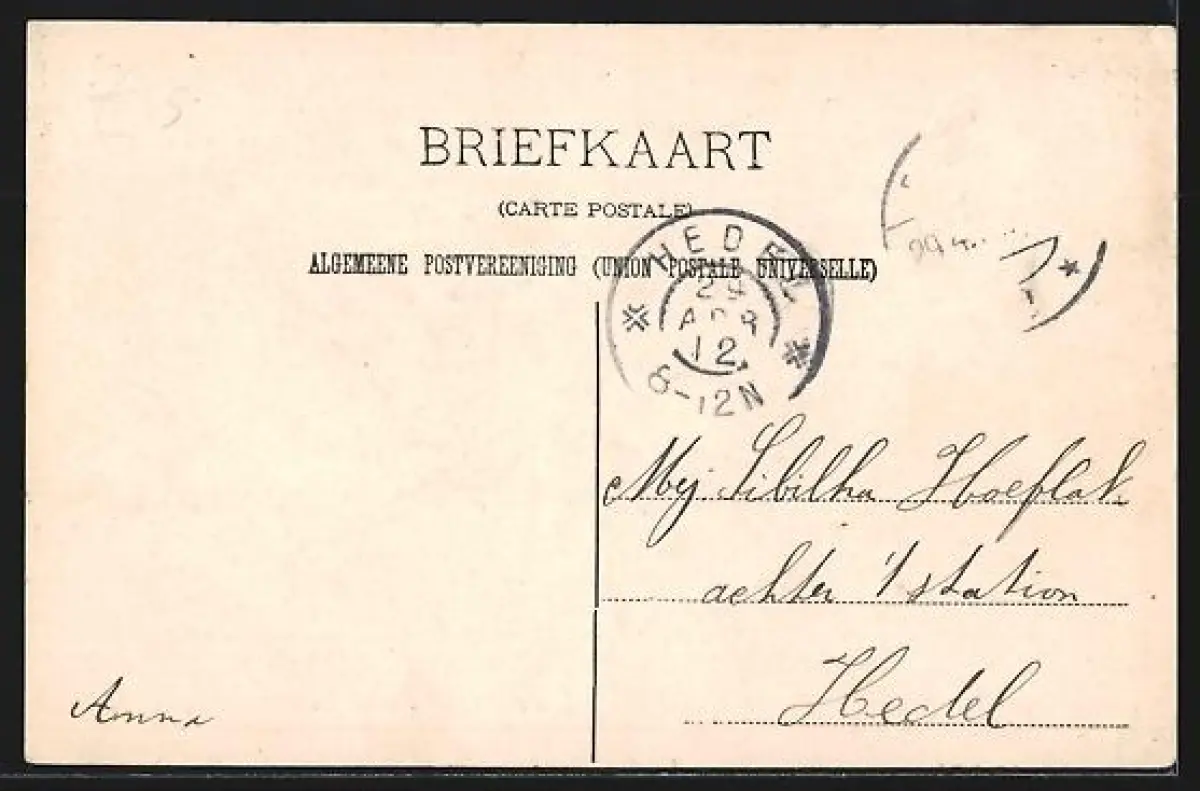 BRIEFKAART
(CARTE POSTALE)
ALGEMEENE POSTVEREENIGING (UNION POSTALE UNIVERSELLE)
HEDEL
29
APR
12
8-12N
Mej Sibilha Hoeflak.
achter 't station
Hedel
Anna